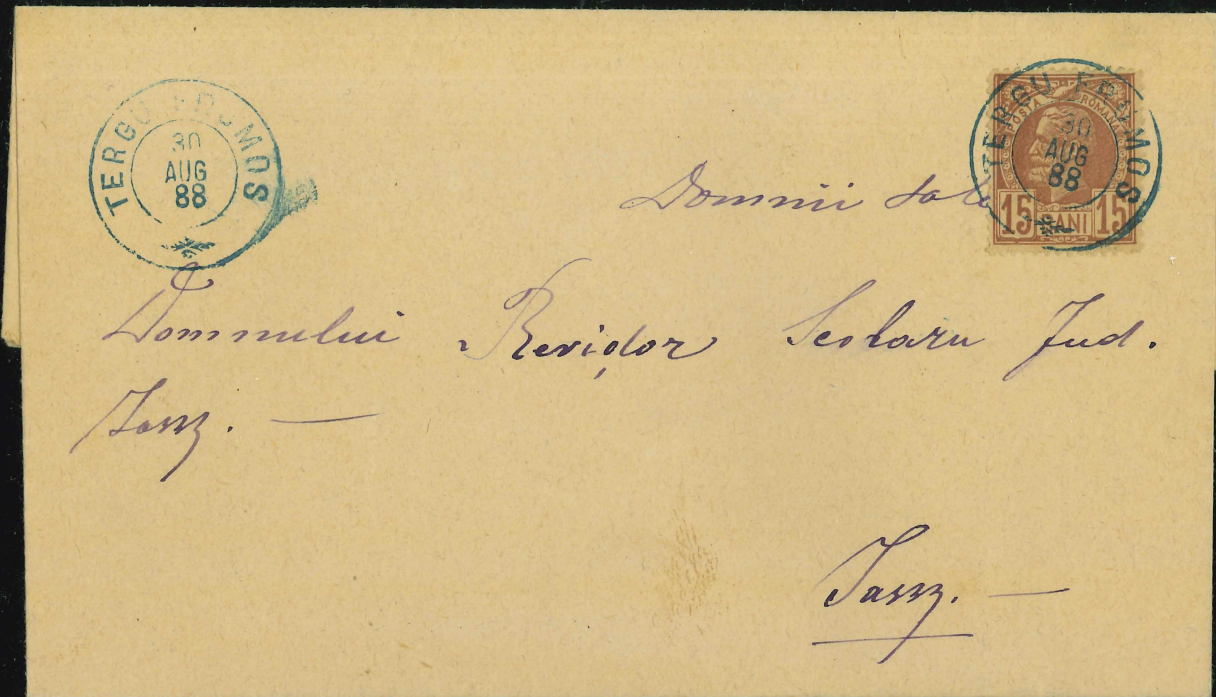 TERGU FRUMOS
30
AUG
88
TERGU FRUMOS
30
AUG
88
POSTA ROMANA
15 BANI 15
Domnii Sale
Domnului Revizor Scolaru Jud.
Iassy. —
Iassy. —